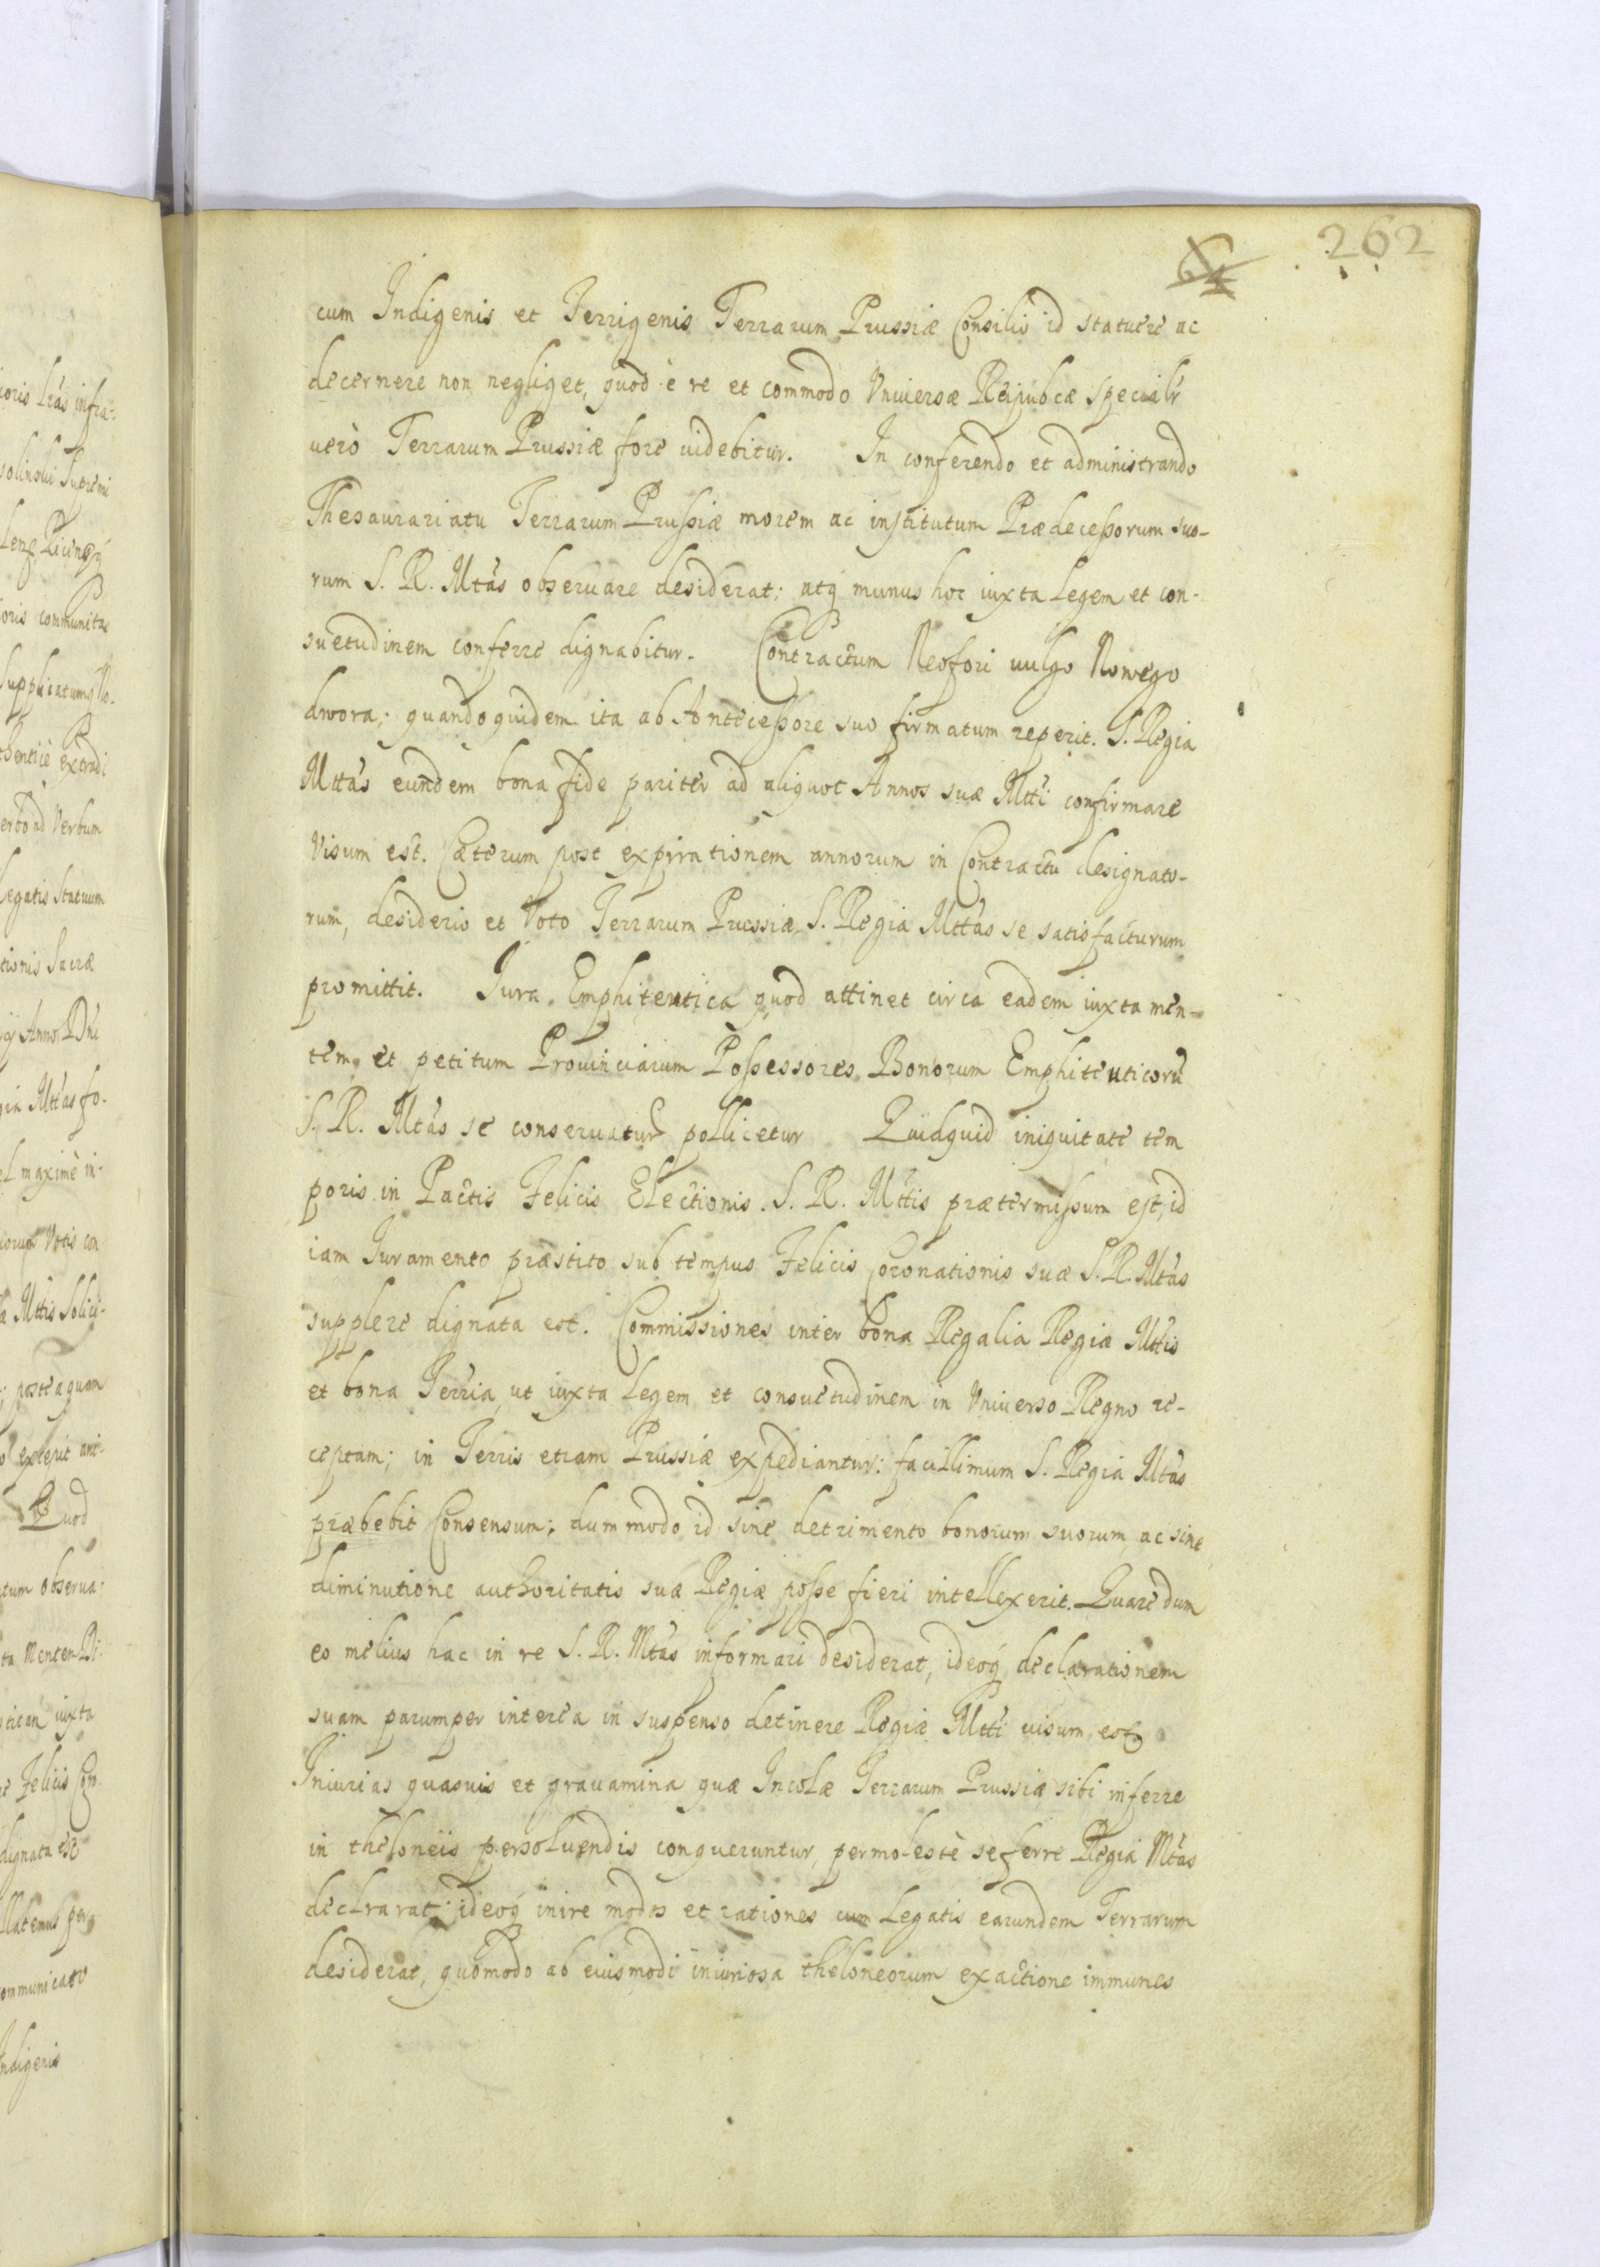 262
64
cum Indigenis et Terrigenis Terrarum Prussiæ Consilio id statuere ac
decernere non negliget, quod è re et commodo Vniversæ Reipubcæ specialr
verò Terrarum Prussiæ fore videbitur. In conferendo et administrando
Thesaurariatu Terrarum Prussiæ morem ac institutum Prædecessorum suo-
rum S. R. Mtàs observare desiderat; atq munus hoc iuxta Legem et con-
suetudinem conferre dignabitur. Contractum Neofori vulgo Nowego
dwora; quandoquidem ita ab Antecessore suo firmatum reperit. S. Regia
Mttàs eundem bona fide pariter ad aliquot Annos suæ Mtti confirmare
visum est. Cæterum post expirationem annorum in Contractu designato-
rum, desiderio et Voto Terrarum Prussiæ S. Regia Mttàs se satisfacturum
promittit. Iura Emphiteutica quod attinet circa eadem iuxta men-
tem et petitum Provinciarum Possessores Bonorum Emphiteuticorũ
S. R. Mtàs se conservaturũ pollicetur Quidquid iniquitate tem
poris in Pactis Felicis Electionis S. R. Mttis prætermissum est, id
iam Iuramento præstito sub tempus Felicis Coronationis suæ S. R. Mtàs
supplere dignata est. Commissiones inter bona Regalia Regiæ Mttis
et bona Terria, ut iuxta Legem et consuetudinem in Vniverso Regno re-
ceptam; in Terris etiam Prussiæ expediantur: facillimum S. Regia Mtàs
præbebit Consensum; dummodo id sine detrimento bonorum suorum ac sine
diminutione authoritatis suæ Regiæ posse fieri intellexerit. Quare dum
eo melius hac in re S. R. Mtàs informari desiderat, ideoq declarationem
suam parumper interea in suspenso detinere Regiæ Mtti visum est
Iniurias quasvis et gravamina quæ Incolæ Terrarum Prussiæ sibi inferre
in theloneis persolvendis conqueruntur, permolestè se ferre Regia Mtàs
declrarat; ideoq inire modos et rationes cum Legatis earundem Terrarum
desiderat, quomodo ab eiusmodi iniuriosa theloneorum exactione immunes